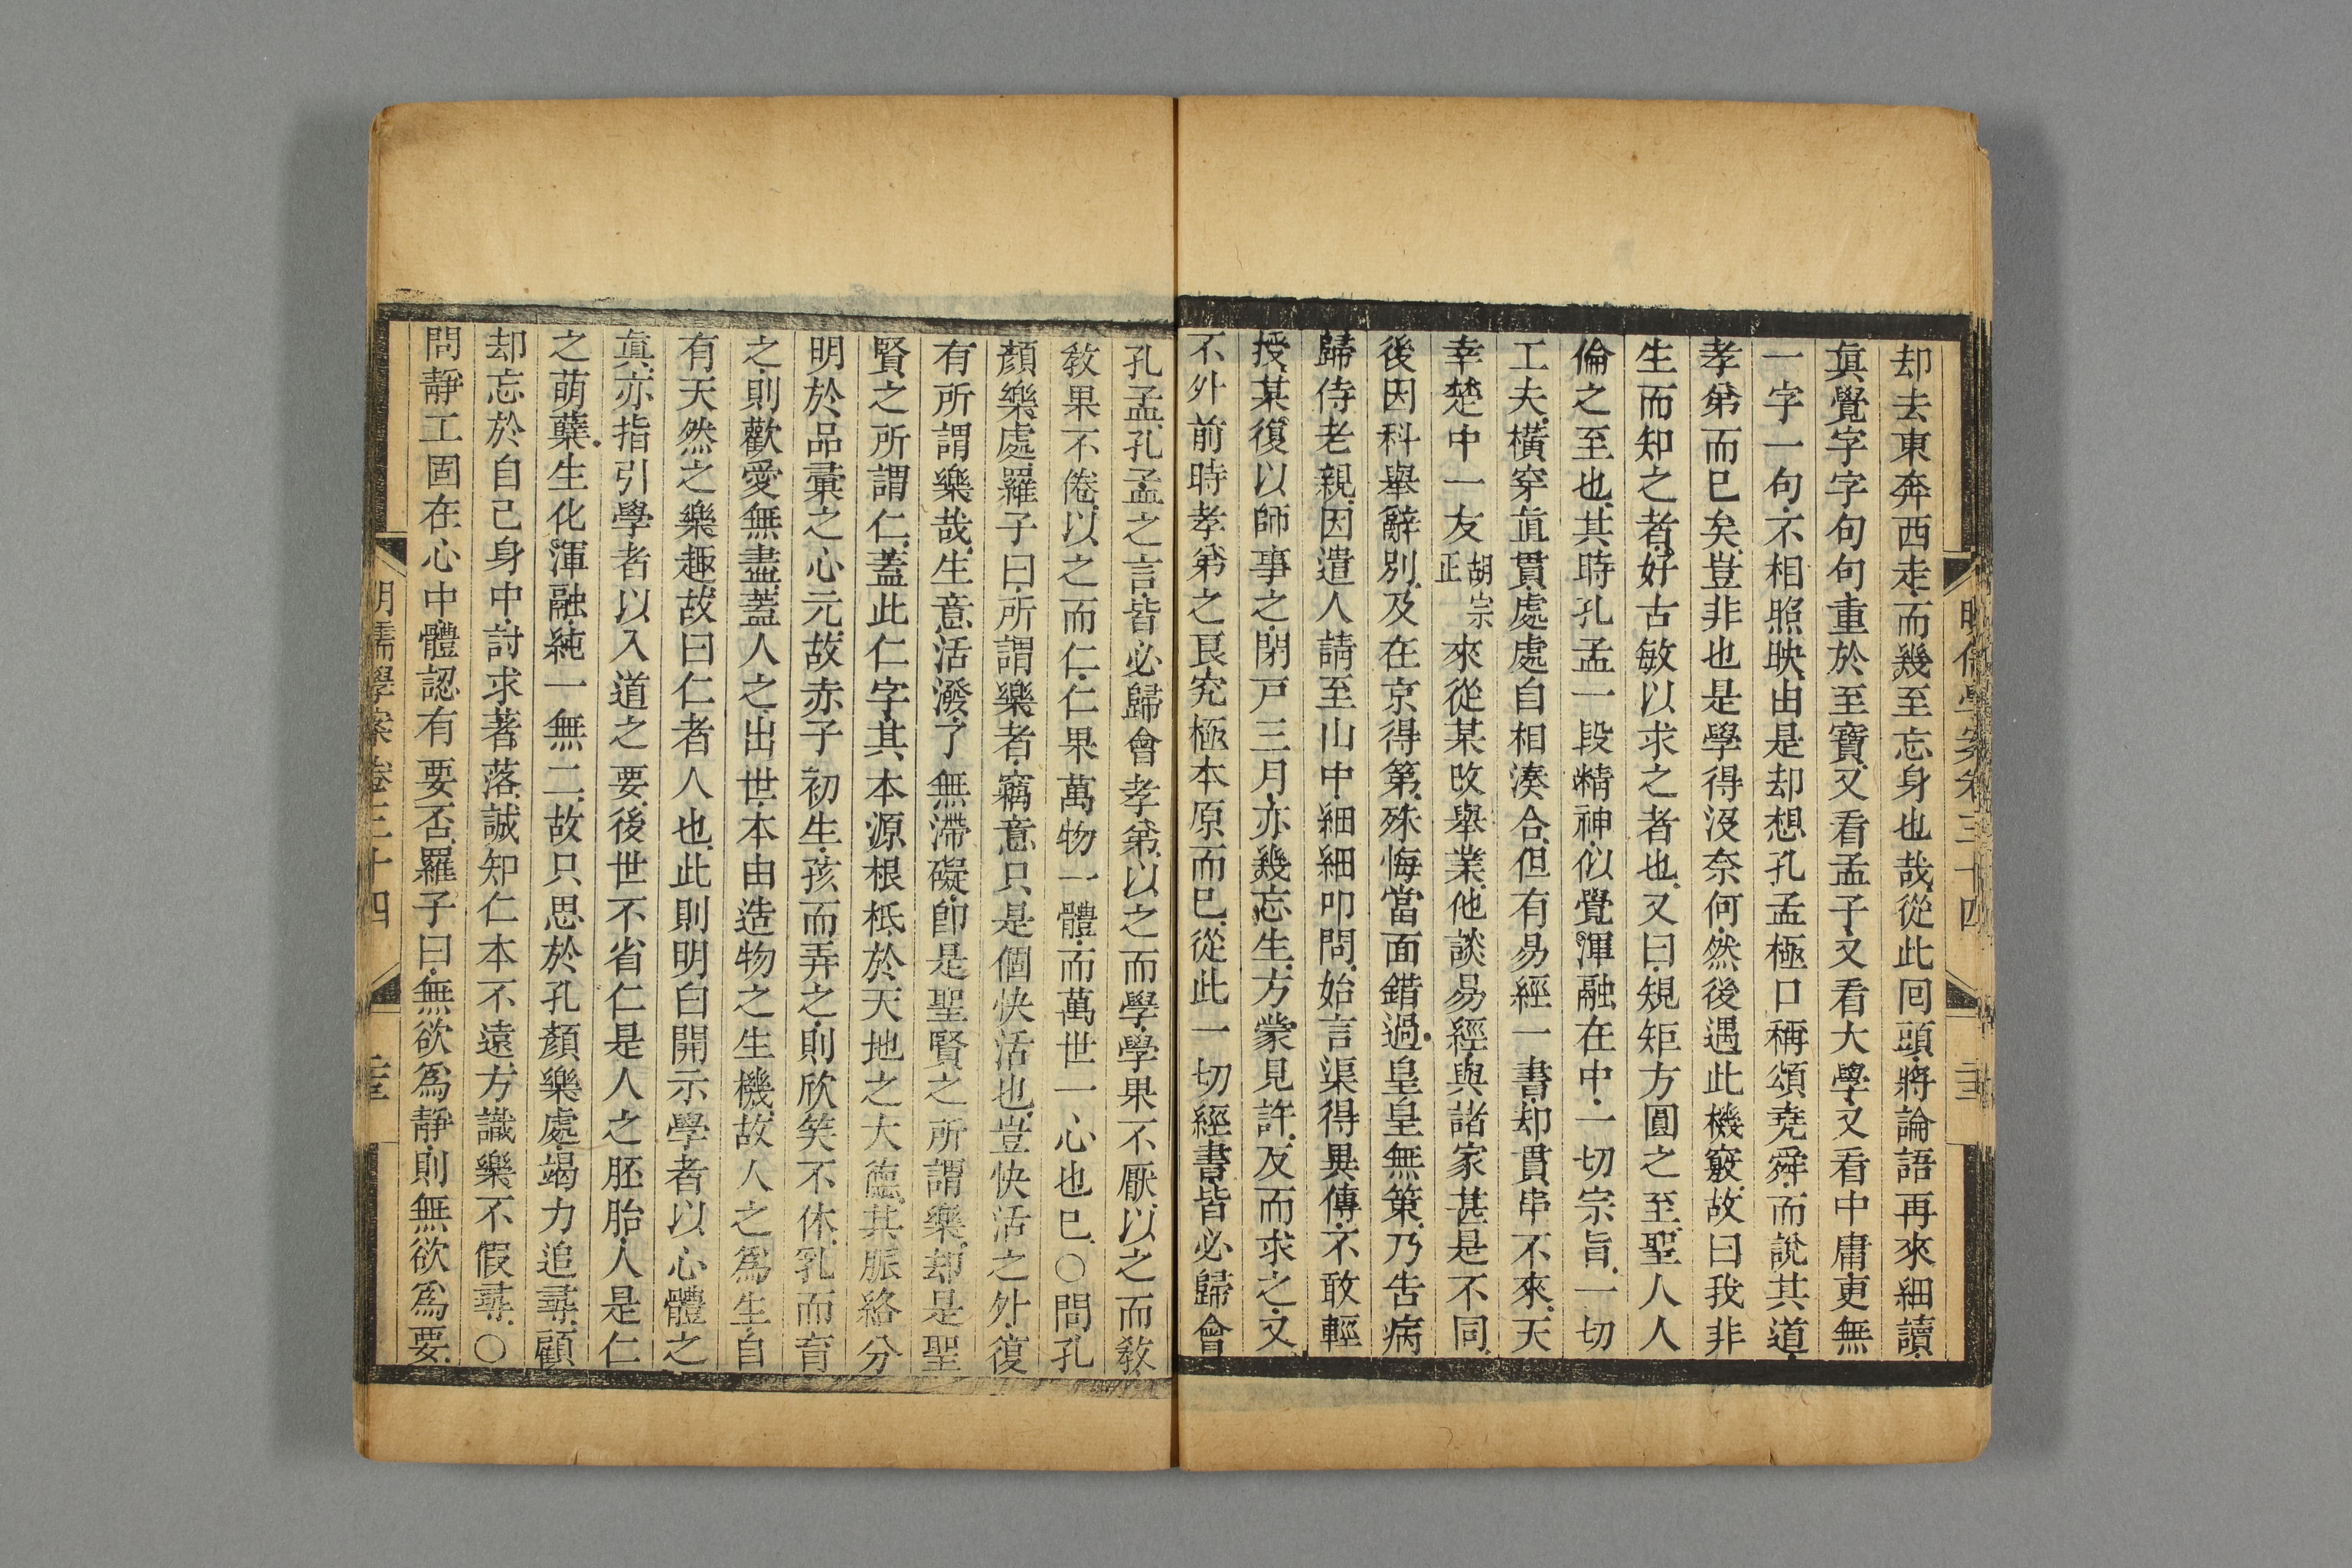 明儒學案卷三十四
却去東奔西走、而幾至忘身也哉、從此回頭、將論語再來細讀、
眞覺字字句句重於至寶、又看孟子、又看大學、又看中庸、更無
一字一句、不相照映、由是却想孔孟極口稱頌堯舜、而說其道、
孝弟而已矣、豈非也是學得沒奈何、然後遇此機竅、故曰我非
生而知之者、好古敏以求之者也、又曰、規矩方圓之至、聖人人
倫之至也、其時孔孟一段精神、似覺渾融在中、一切宗旨、一切
工夫、橫穿直貫、處處自相湊合、但有易經一書、却貫串不來、天
幸楚中一友胡宗正來從某改舉業、他談易經與諸家甚是不同、
後因科舉辭別、及在京得第、殊悔當面錯過、皇皇無策、乃告病
歸侍老親、因遣人請至山中、細細叩問、始言渠得異傳、不敢輕
授、某復以師事之、閉戸三月、亦幾忘生、方蒙見許、反而求之、又
不外前時孝弟之良、究極本原而已、從此一切經書、皆必歸會
孔孟、孔孟之言、皆必歸會孝弟、以之而學、學果不厭、以之而敎、
敎果不倦、以之而仁、仁果萬物一體、而萬世一心也已、○問孔
顏樂處、羅子曰、所謂樂者、竊意只是個快活也、豈快活之外、復
有所謂樂哉、生意活潑、了無滯礙、卽是聖賢之所謂樂、却是聖
賢之所謂仁、蓋此仁字、其本源根柢、於天地之大德、其脈絡分
明於品彙之心元、故赤子初生、孩而弄之、則欣笑不休、乳而育
之、則歡愛無盡、蓋人之出世、本由造物之生機、故人之爲生、自
有天然之樂趣、故曰仁者人也、此則明白開示學者以心體之
眞、亦指引學者以入道之要、後世不省仁是人之胚胎、人是仁
之萌蘖、生化渾融、純一無二、故只思於孔顏樂處、竭力追尋、顧
却忘於自己身中、討求著落、誠知仁本不遠、方識樂不假尋、○
問靜工固在心中、體認有要否、羅子曰、無欲爲靜、則無欲爲要、
明儒學案卷三十四